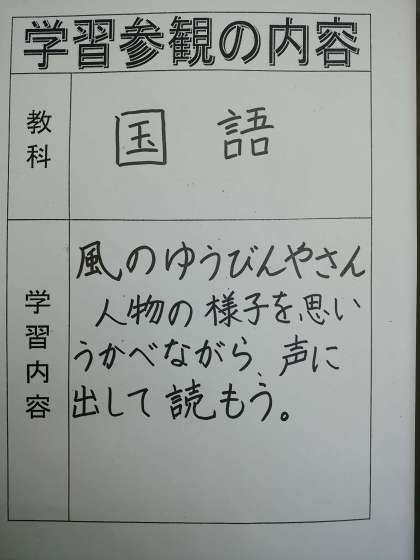 学習参観の内容
教科
国語
学習内容
風のゆうびんやさん
人物の様子を、思い
うかべながら、声に
出して読もう。